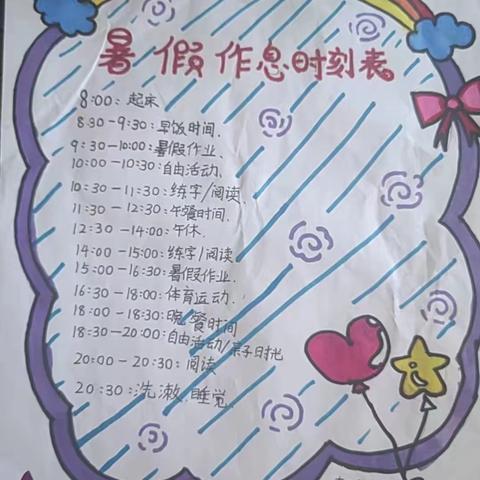 暑假作息时刻表
8:00: 起床
8:30-9:30: 早饭时间、
9:30-10:00: 暑假作业、
10:00-10:30: 自由活动、
10:30-11:30: 练字/阅读
11:30-12:30: 午餐时间、
12:30-14:00: 午休、
14:00-15:00: 练字/阅读
15:00-16:30: 暑假作业、
16:30-18:00: 体育运动、
18:00-18:30: 晚餐时间
18:30-20:00: 自由活动/亲子时光
20:00-20:30: 阅读
20:30: 洗漱、睡觉、